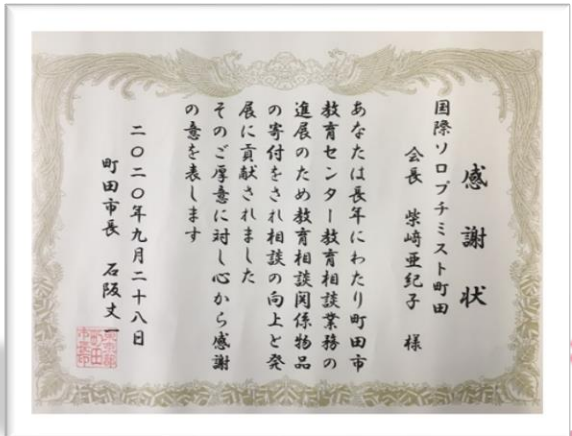 感謝状
国際ソロプチミスト町田
会長 柴﨑亜紀子 様
あなたは長年にわたり町田市
教育センター教育相談業務の
進展のため教育相談関係物品
の寄付をされ相談の向上と発
展に貢献されました
そのご厚意に対し心から感謝
の意を表します
二〇二〇年九月二十八日
町田市長 石阪丈一